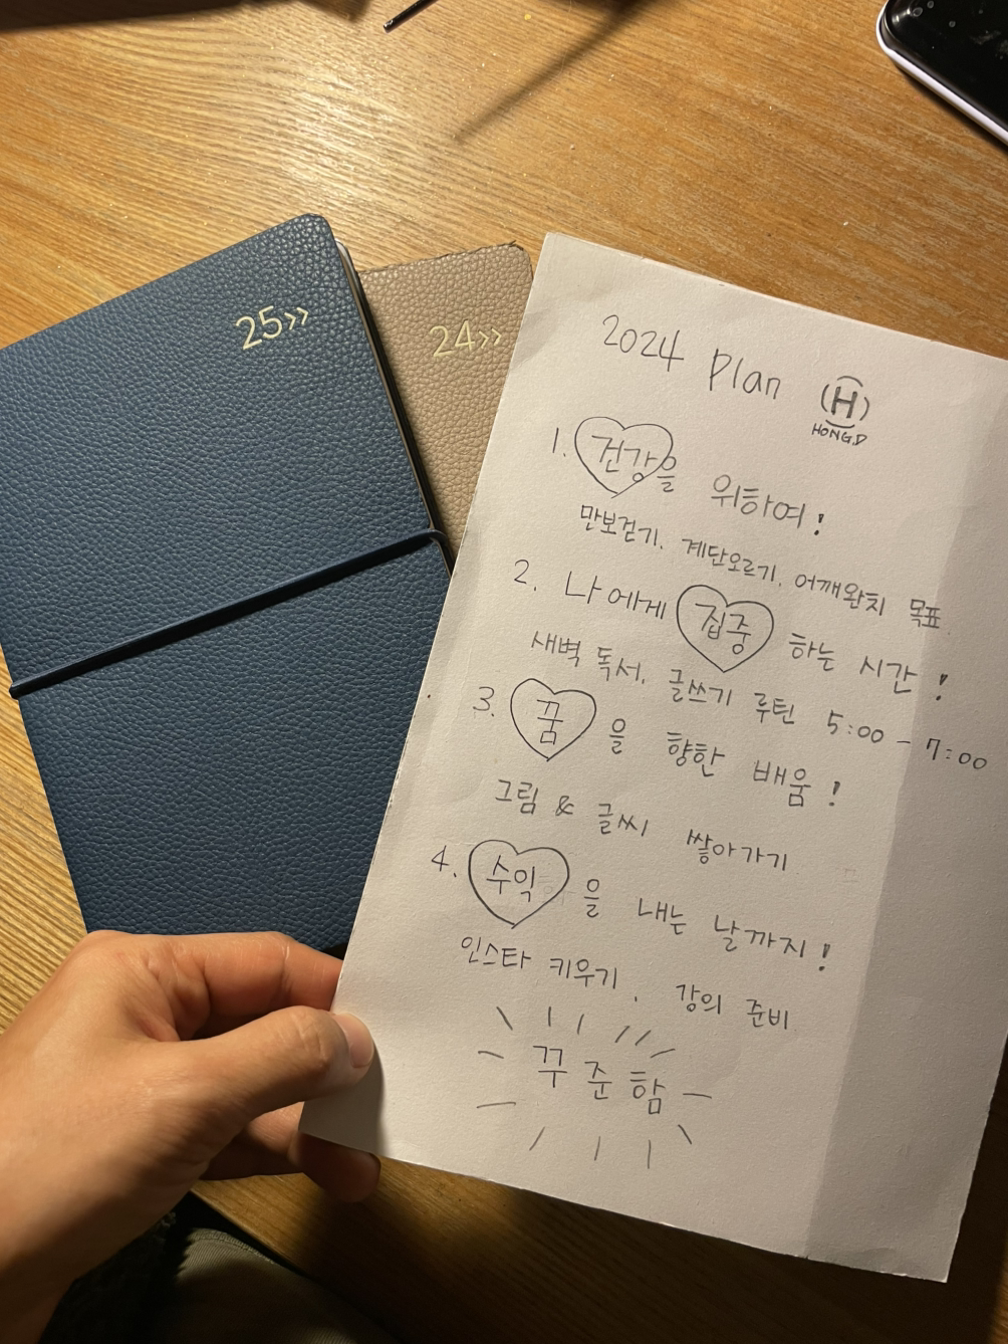 25>>
24>>
2024 Plan
(H)
HONG.D
1. 건강을 위하여!
만보걷기, 계단오르기, 어깨완치 목표
2. 나에게 집중 하는 시간!
새벽 독서, 글쓰기 루틴 5:00 - 7:00
3. 꿈을 향한 배움!
그림 & 글씨 쌓아가기
4. 수익을 내는 날까지!
인스타 키우기, 강의 준비
꾸준함